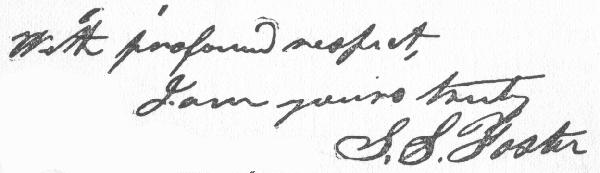 With profound respect,
I am yours truly
S. S. Foster